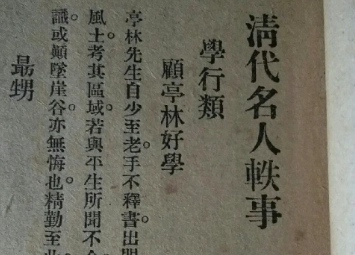 淸代名人軼事
學行類
顧亭林好學
亭林先生自少至老。手不釋書。出門
風土考其區域。若與平生所聞不合
識。或顚墜崖谷。亦無悔也。精勤至此
最甥